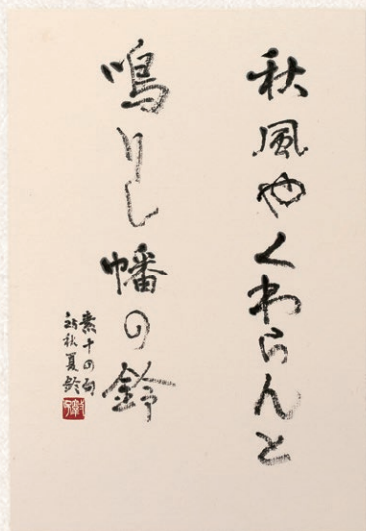 秋風やくわらんと
鳴りし幡の鈴
素十の句